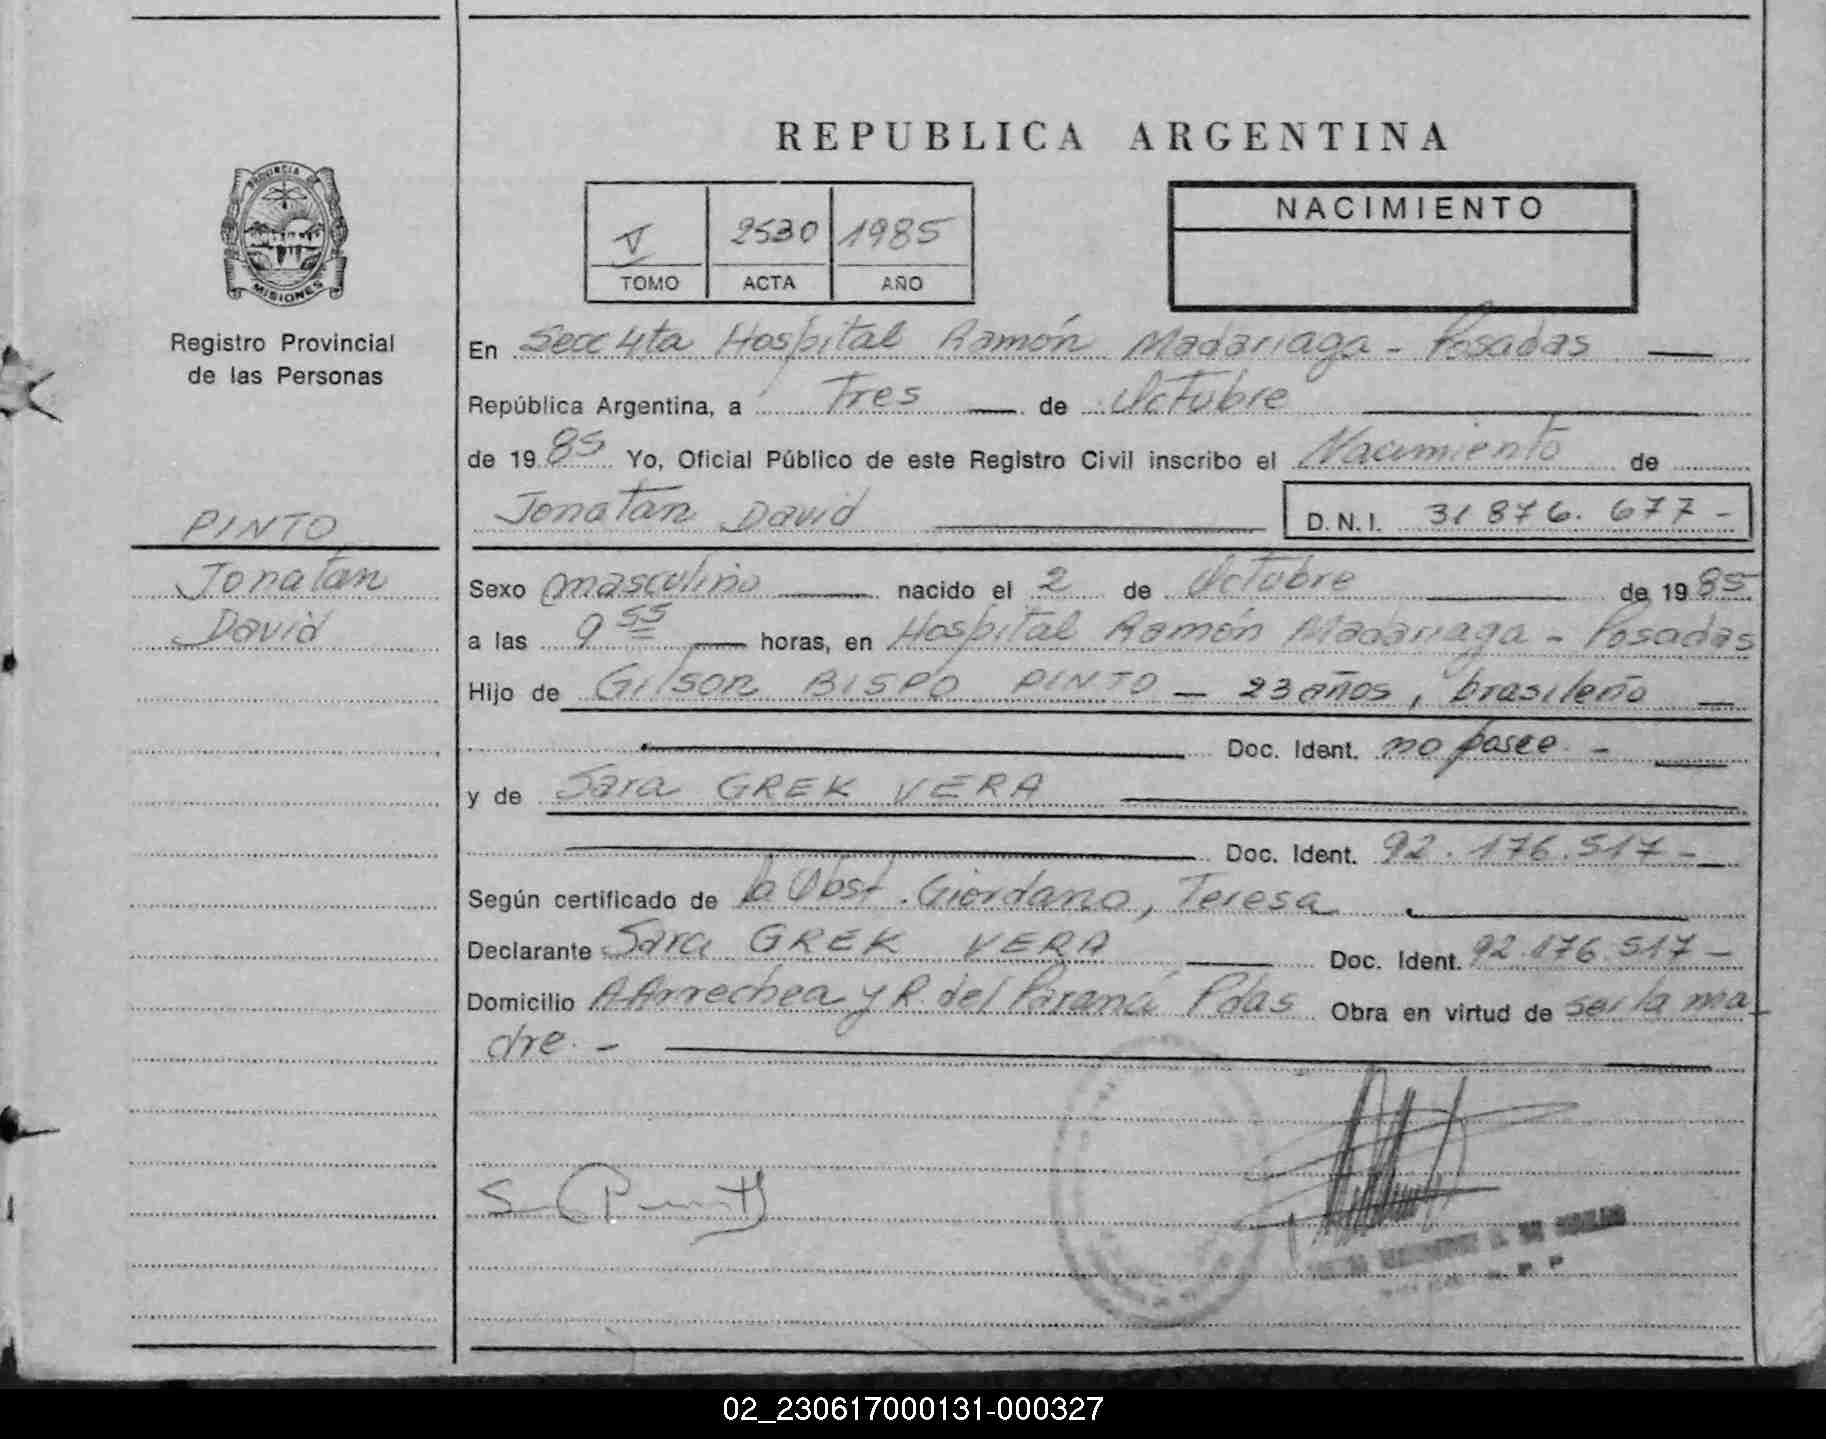 REPUBLICA ARGENTINA
PROVINCIA DE
MISIONES
Registro Provincial
de las Personas
V 2530 1985
TOMO ACTA AÑO
NACIMIENTO
En Secc 4ta Hospital Ramón Madariaga - Posadas
República Argentina, a Tres de Octubre
de 1985 Yo, Oficial Público de este Registro Civil inscribo el Nacimiento de
Jonatan David D.N.I. 31 876. 677 -
PINTO
Jonatan
David
Sexo masculino nacido el 2 de Octubre de 1985.
a las 9 55 horas, en Hospital Ramón Madariaga - Posadas
Hijo de Gilson BISPO PINTO - 23 años, brasileño
Doc. Ident. no posee. -
y de Sara GREK VERA
Doc. Ident. 92.176.517 -
Según certificado de la Obst. Giordano, Teresa
Declarante Sara GREK VERA Doc. Ident. 92.176.517 -
Domicilio A. Arrechea y R. del Paraná Pdas Obra en virtud de ser la ma-
dre. -
02_230617000131-000327